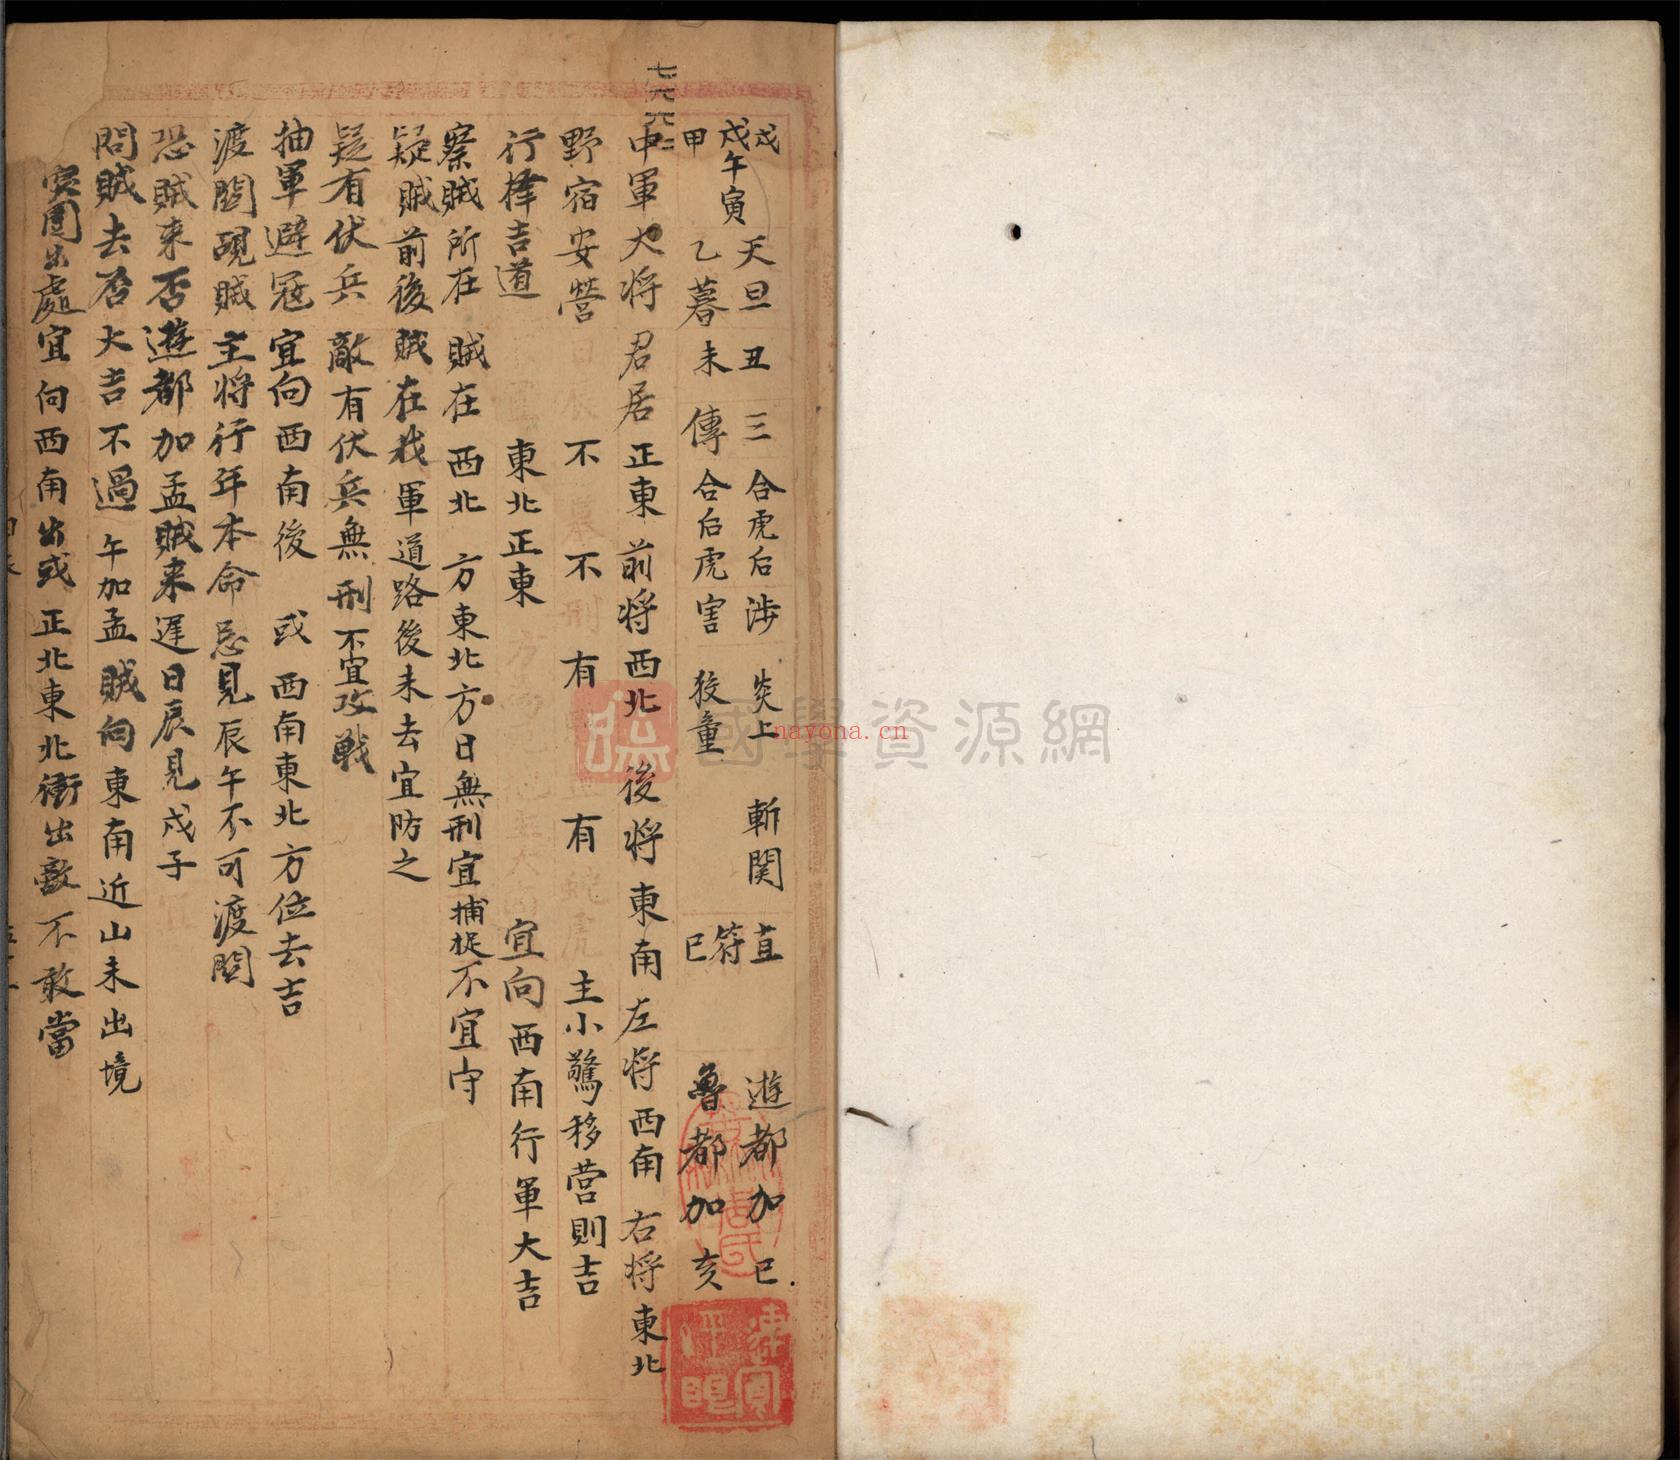 戊 天旦丑 三 合虎后 涉 炎上 斬関 直 遊都加巳
戊午寅 傳 符
甲 乙暮未 合后虎 害 狡童 巳 魯都加亥
中軍大将君居正東前将西北後将東南左将西南右将東北
野宿安營 不 不 有 有 主小驚移营則吉
行擇吉道 東北正東 宜向西南行軍大吉
察賊所在 賊在西北方東北方日無刑宜捕捉不宜守
疑賊前後賊在我軍道路後未去宜防之
疑有伏兵敵有伏兵無刑不宜攻戦
抽軍避冦宜向西南後或西南東北方位去吉
渡関覘賊主将行年本命忌見辰午不可渡関
恐賊来否遊都加孟賊来遅日辰見戌子
問賊去否大吉不過午加孟賊向東南近山未出境
突圍出處宜向西南出或正北東北衝出敵不敢當
國學資源網
nayona.cn